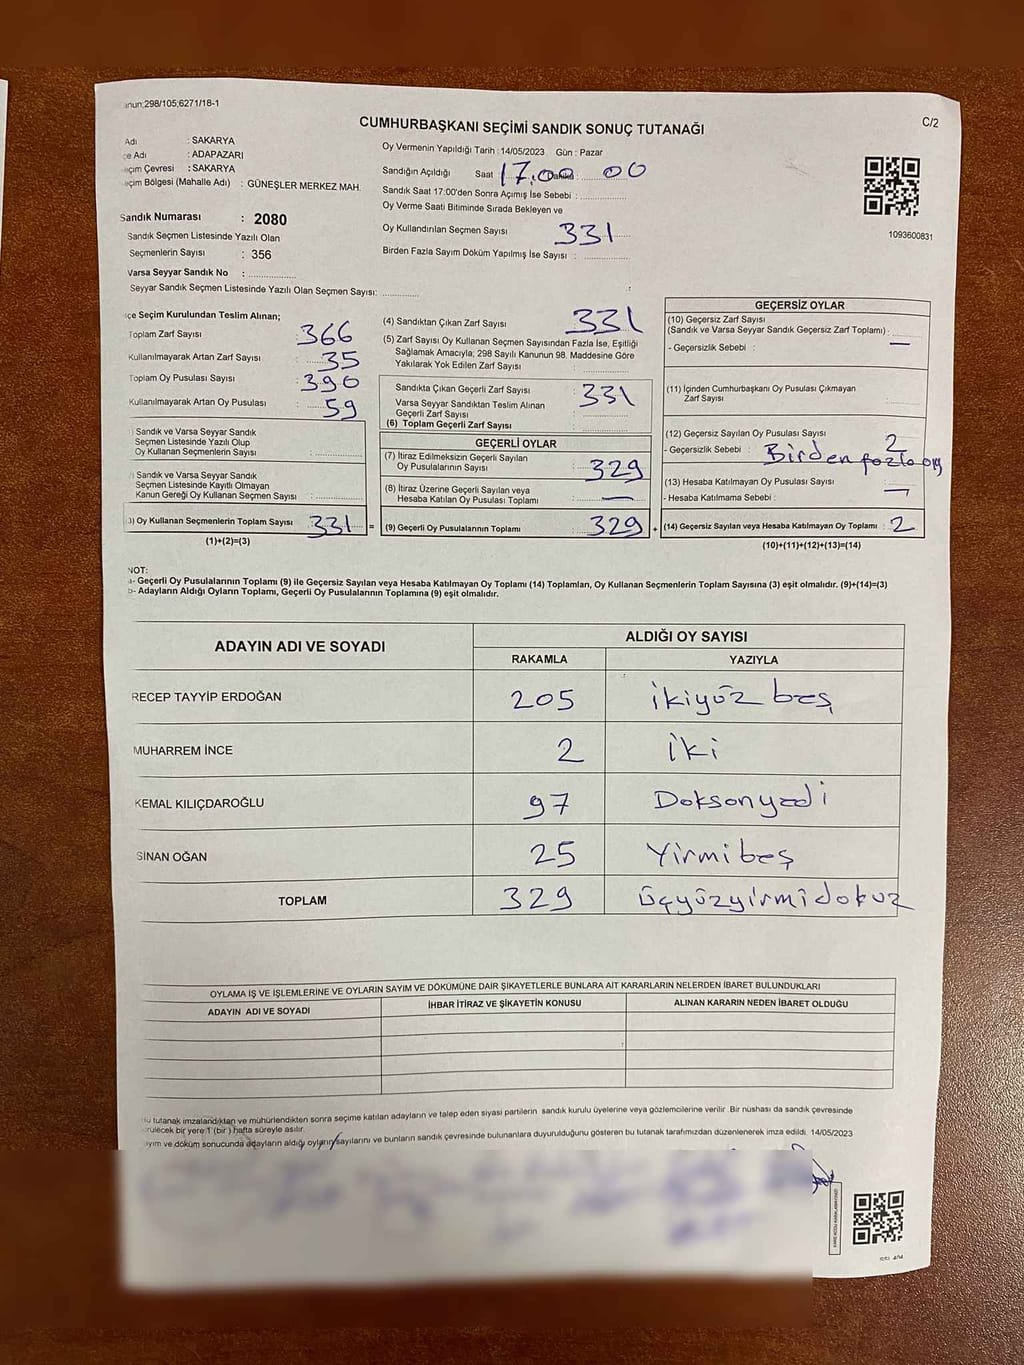 anun;298/105;6271/18-1
C/2
CUMHURBAŞKANI SEÇİMİ SANDIK SONUÇ TUTANAĞI
Adı : SAKARYA
çe Adı : ADAPAZARI
eçim Çevresi : SAKARYA
eçim Bölgesi (Mahalle Adı) : GÜNEŞLER MERKEZ MAH.
Sandık Numarası : 2080
Sandık Seçmen Listesinde Yazılı Olan
Seçmenlerin Sayısı : 356
Varsa Seyyar Sandık No :
Seyyar Sandık Seçmen Listesinde Yazılı Olan Seçmen Sayısı:
Oy Vermenin Yapıldığı Tarih : 14/05/2023 Gün : Pazar
Sandığın Açıldığı Saat 17.00 Dakika : 00
Sandık Saat 17:00'den Sonra Açımış İse Sebebi :
Oy Verme Saati Bitiminde Sırada Bekleyen ve
Oy Kullandırılan Seçmen Sayısı 331
Birden Fazla Sayım Döküm Yapılmış İse Sayısı :
1093600831
çe Seçim Kurulundan Teslim Alınan;
Toplam Zarf Sayısı : 366
Kullanılmayarak Artan Zarf Sayısı : 35
Toplam Oy Pusulası Sayısı : 390
Kullanılmayarak Artan Oy Pusulası : 59
) Sandık ve Varsa Seyyar Sandık
Seçmen Listesinde Yazılı Olup
Oy Kullanan Seçmenlerin Sayısı :
) Sandık ve Varsa Seyyar Sandık
Seçmen Listesinde Kayıtlı Olmayan
Kanun Gereği Oy Kullanan Seçmen Sayısı :
3) Oy Kullanan Seçmenlerin Toplam Sayısı 331 =
(1)+(2)=(3)
(4) Sandıktan Çıkan Zarf Sayısı : 331
(5) Zarf Sayısı Oy Kullanan Seçmen Sayısından Fazla İse, Eşitliği
Sağlamak Amacıyla; 298 Sayılı Kanunun 98. Maddesine Göre
Yakılarak Yok Edilen Zarf Sayısı :
Sandıkta Çıkan Geçerli Zarf Sayısı : 331
Varsa Seyyar Sandıktan Teslim Alınan
Geçerli Zarf Sayısı :
(6) Toplam Geçerli Zarf Sayısı :
GEÇERLİ OYLAR
(7) İtiraz Edilmeksizin Geçerli Sayılan
Oy Pusulalarının Sayısı : 329
(8) İtiraz Üzerine Geçerli Sayılan veya
Hesaba Katılan Oy Pusulası Toplamı : —
(9) Geçerli Oy Pusulalarının Toplamı : 329 +
GEÇERSİZ OYLAR
(10) Geçersiz Zarf Sayısı
(Sandık ve Varsa Seyyar Sandık Geçersiz Zarf Toplamı) :
- Geçersizlik Sebebi : —
(11) İçinden Cumhurbaşkanı Oy Pusulası Çıkmayan
Zarf Sayısı :
(12) Geçersiz Sayılan Oy Pusulası Sayısı : 2
- Geçersizlik Sebebi : Birden fazla oy
(13) Hesaba Katılmayan Oy Pusulası Sayısı :
- Hesaba Katılmama Sebebi : —
(14) Geçersiz Sayılan veya Hesaba Katılmayan Oy Toplamı : 2
(10)+(11)+(12)+(13)=(14)
NOT:
a- Geçerli Oy Pusulalarının Toplamı (9) ile Geçersiz Sayılan veya Hesaba Katılmayan Oy Toplamı (14) Toplamları, Oy Kullanan Seçmenlerin Toplam Sayısına (3) eşit olmalıdır. (9)+(14)=(3)
b- Adayların Aldığı Oyların Toplamı, Geçerli Oy Pusulalarının Toplamına (9) eşit olmalıdır.
ADAYIN ADI VE SOYADI
ALDIĞI OY SAYISI
RAKAMLA YAZIYLA
RECEP TAYYİP ERDOĞAN 205 ikiyüz beş
MUHARREM İNCE 2 iki
KEMAL KILIÇDAROĞLU 97 Doksonyedi
SİNAN OĞAN 25 Yirmibeş
TOPLAM 329 üçyüzyirmidokuz
OYLAMA İŞ VE İŞLEMLERİNE VE OYLARIN SAYIM VE DÖKÜMÜNE DAİR ŞİKAYETLERLE BUNLARA AİT KARARLARIN NELERDEN İBARET BULUNDUKLARI
ADAYIN ADI VE SOYADI İHBAR İTİRAZ VE ŞİKAYETİN KONUSU ALINAN KARARIN NEDEN İBARET OLDUĞU
bu tutanak imzalandıktan ve mühürlendikten sonra seçime katılan adayların ve talep eden siyasi partilerin sandık kurulu üyelerine veya gözlemcilerine verilir .Bir nüshası da sandık çevresinde
örülecek bir yere 1 (bir) hafta süreyle asılır.
ayım ve döküm sonucunda adayların aldığı oyların sayılarını ve bunların sandık çevresinde bulunanlara duyurulduğunu gösteren bu tutanak tarafımızdan düzenlenerek imza edildi. 14/05/2023